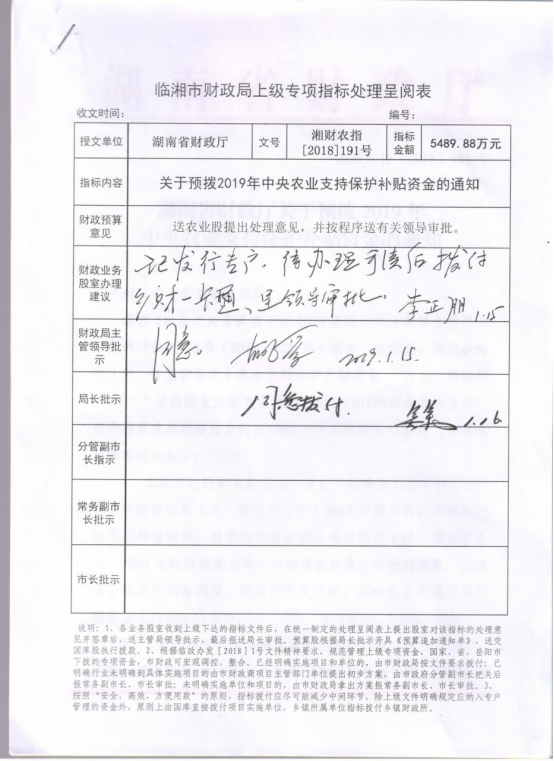 临湘市财政局上级专项指标处理呈阅表
收文时间: 编号:
授文单位 湖南省财政厅 文号 湘财农指[2018]191号 指标金额 5489.88万元
指标内容 关于预拨2019年中央农业支持保护补贴资金的通知
财政预算意见 送农业股提出处理意见，并按程序送有关领导审批。
财政业务股室办理建议
呈领导审批. 李正明 1.15
财政局主管领导批示 同意。 2019.1.15.
局长批示 同意拨付. 1.16
分管副市长指示
常务副市长批示
市长批示
说明：1、各业务股室收到上级下达的指标文件后，在统一制定的处理呈阅表上提出股室对该指标的处理意
见并签章后，送主管局领导批示，最后报送局长审批，预算股根据局长批示开具《预算追加通知单》，送交
国库股执行拨款。2、根据临政办发[2018]1号文件精神要求，规范管理上级专项资金，国家、省、岳阳市
下拨的专项资金，市财政可宏观调控、整合，已经明确实施项目和单位的，由市财政局按文件要求拨付；已
明确行业未明确到具体实施项目的由市财政商项目主管部门单位提出初步方案，由市政府分管副市长把关后
报常务副市长、市长审批；未明确实施单位和项目的，由市财政局拿出方案报常务副市长、市长审批。3、
按照“安全、高效、方便用款”的原则，指标拨付应尽可能减少中间环节，除上级文件明确规定应的入专户
管理的资金外，原则上由国库直接拨付项目实施单位，乡镇所属单位指标拨付乡镇财政所。